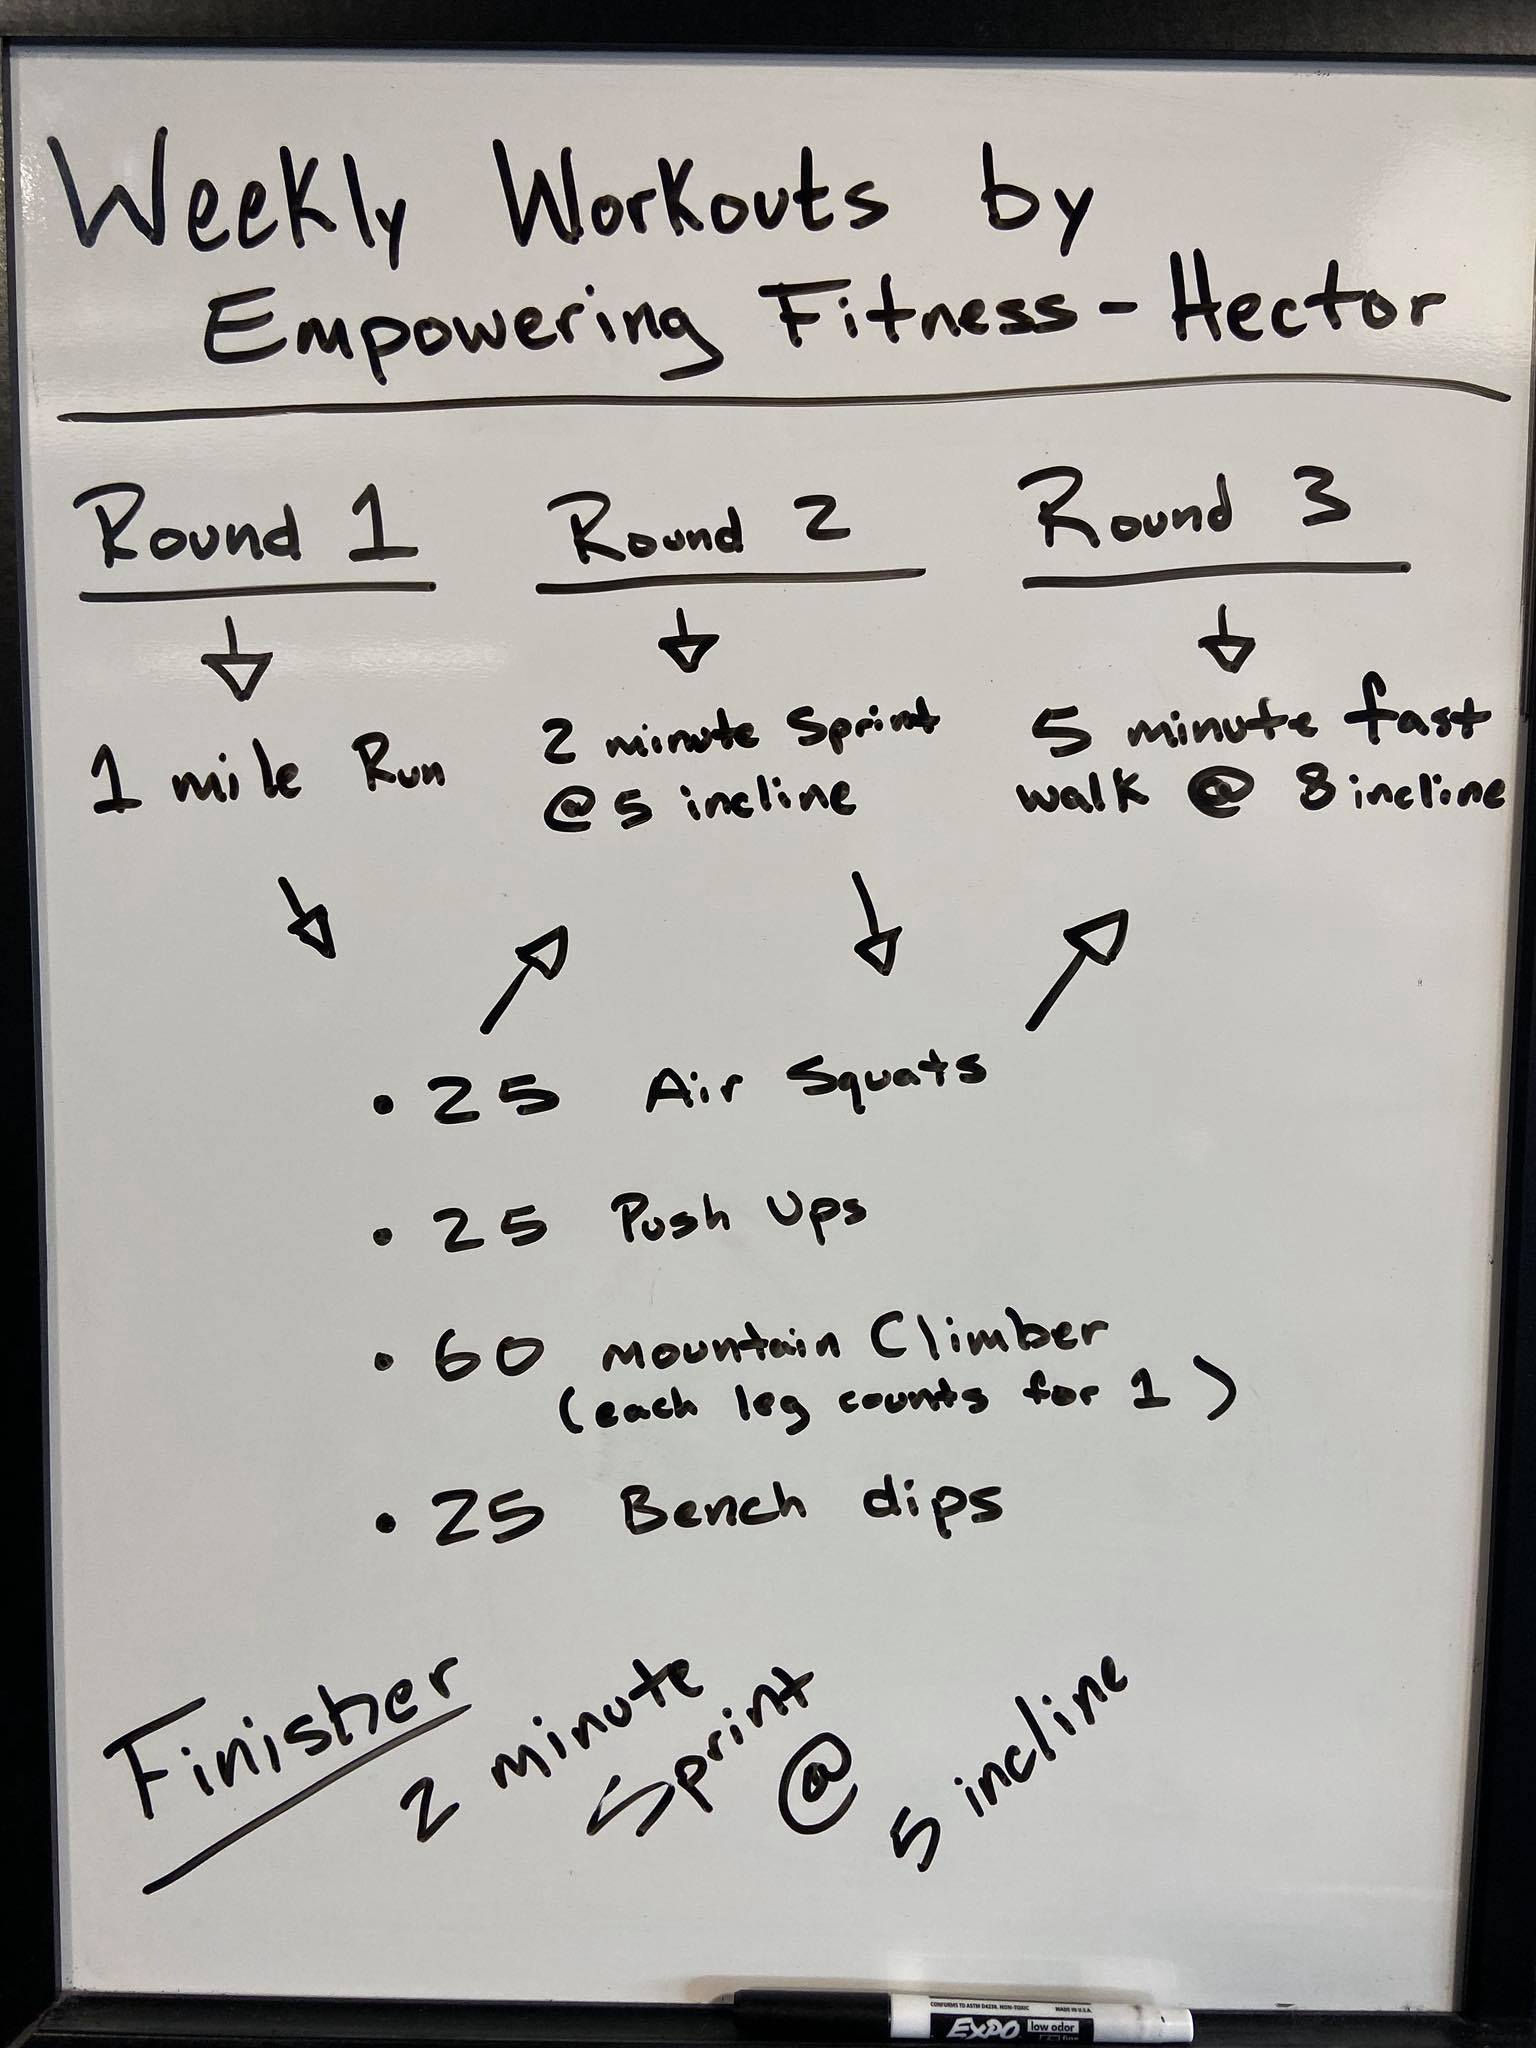 Weekly Workouts by
Empowering Fitness - Hector
Round 1
Round 2
Round 3
1 mile Run
2 minute Sprint
@ 5 incline
5 minute fast
walk @ 8 incline
• 25 Air Squats
• 25 Push Ups
• 60 mountain Climber
(each leg counts for 1)
• 25 Bench dips
Finisher
2 minute
Sprint
@
5 incline
CONFORMS TO ASTM D4236. NON-TOXIC
MADE IN U.S.A.
EXPO low odor
fine